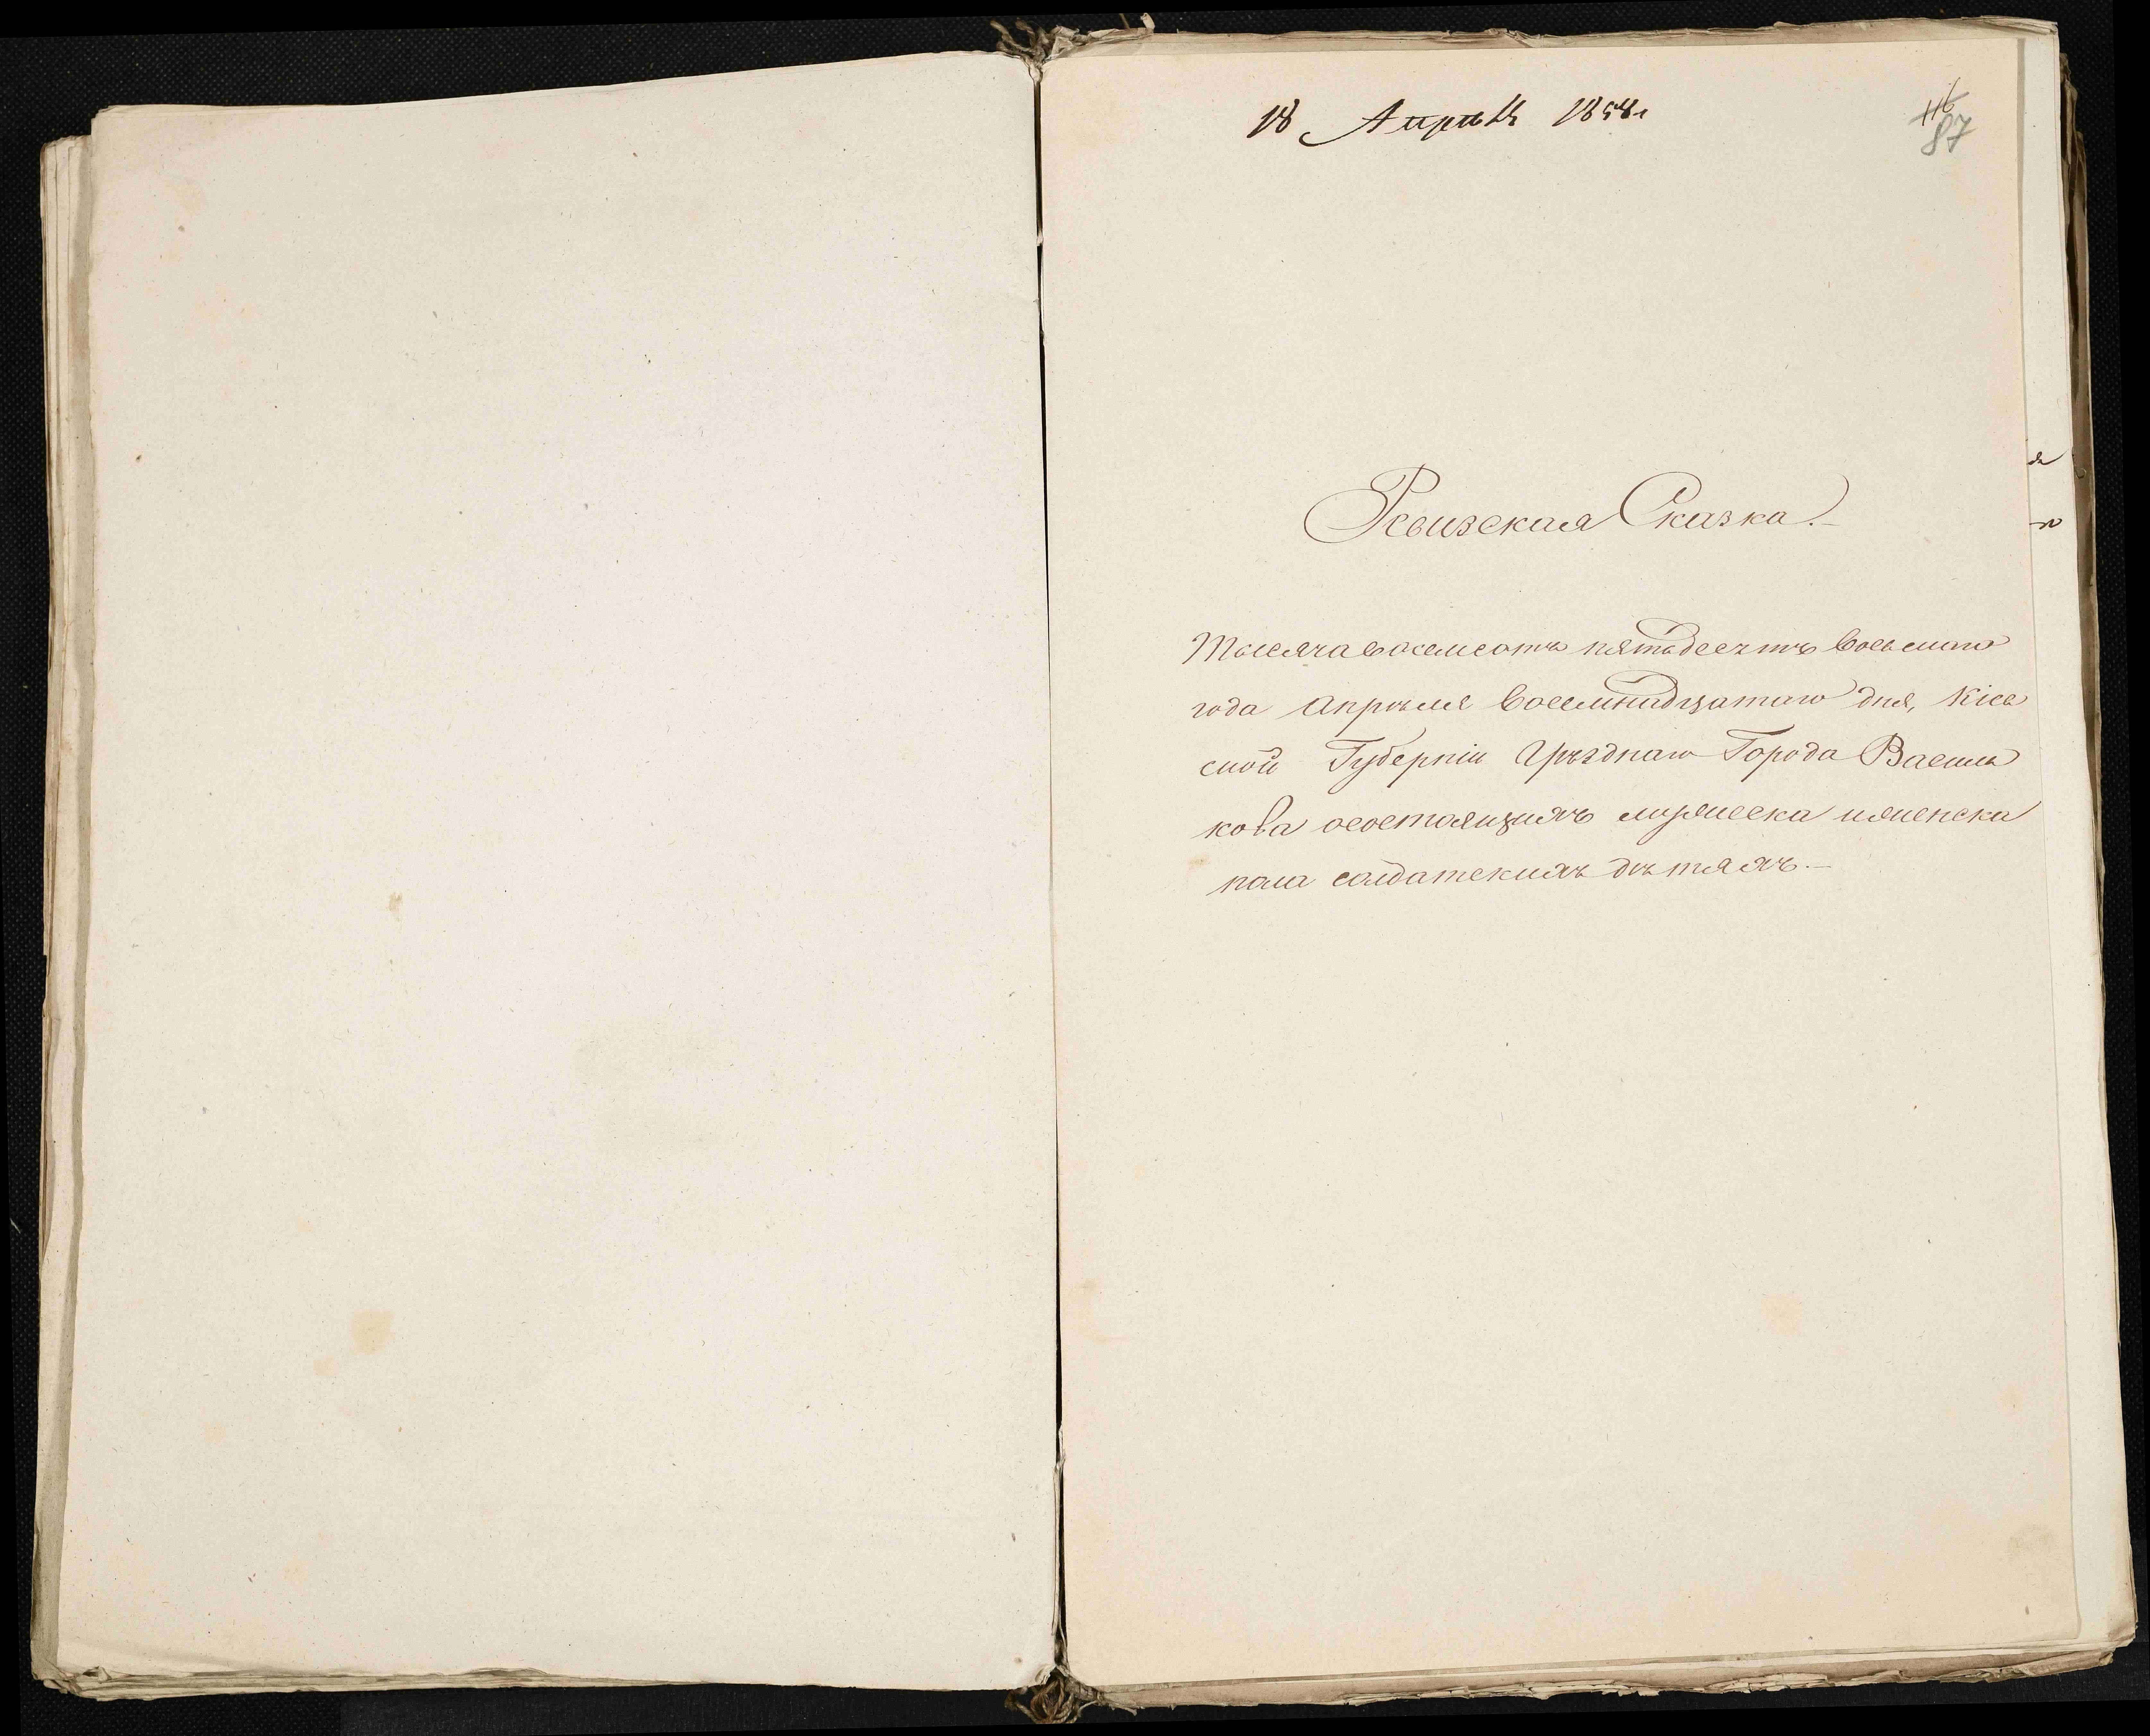 18 Апрѣль 1858 г
116
87
Ревизская Сказка.—
Тысяча восемсотъ пятьдесятъ восьмаго
года Апрѣля восемнадцатаго дня, Кіев
ской Губерніи Уѣзднаго Города Василь
кова осостоящихъ мужеска иженска
пола солдатскихъ дѣтяхъ.—